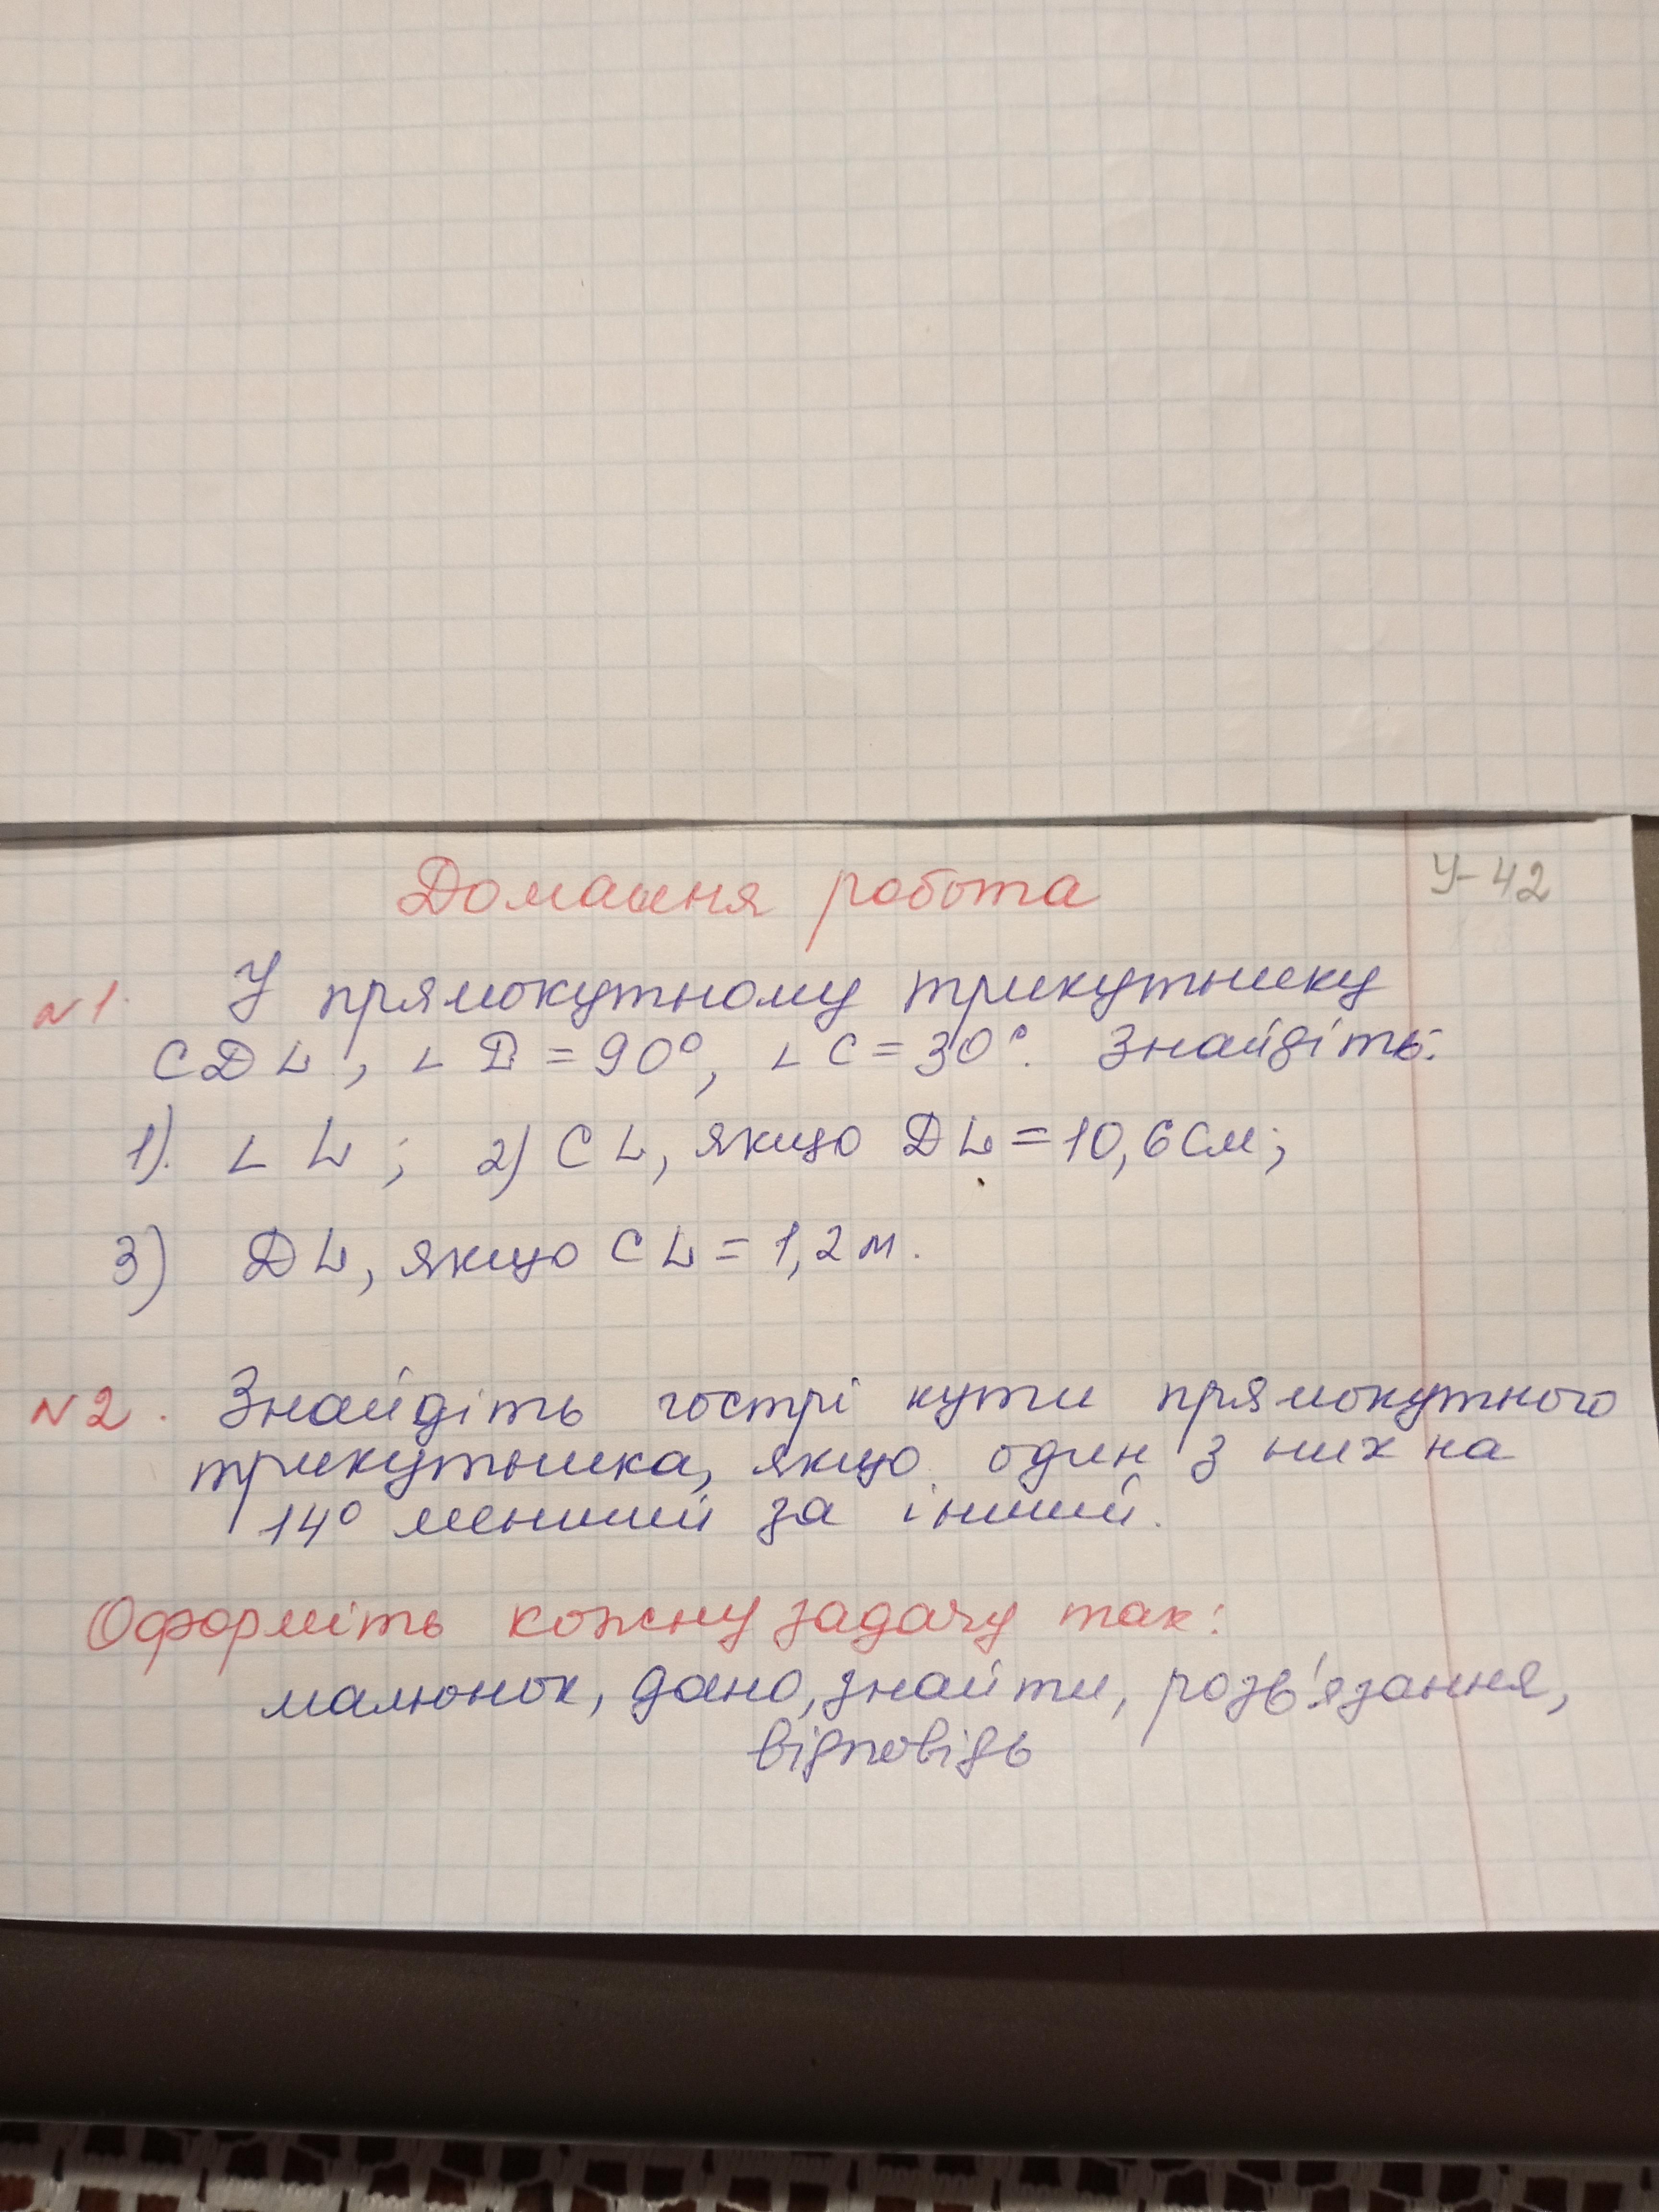 Домашня робота
У-42
№1. У прямокутному трикутнику
CDL, ∠D = 90°, ∠C = 30°. Знайдіть:
1). ∠L; 2) CL, якщо DL = 10,6 см;
3) DL, якщо CL = 1,2 м.
№2. Знайдіть гострі кути прямокутного
трикутника, якщо один з них на
14° менший за інший.
Оформіть кожну задачу так:
малюнок, дано, знайти, розв'язання,
відповідь